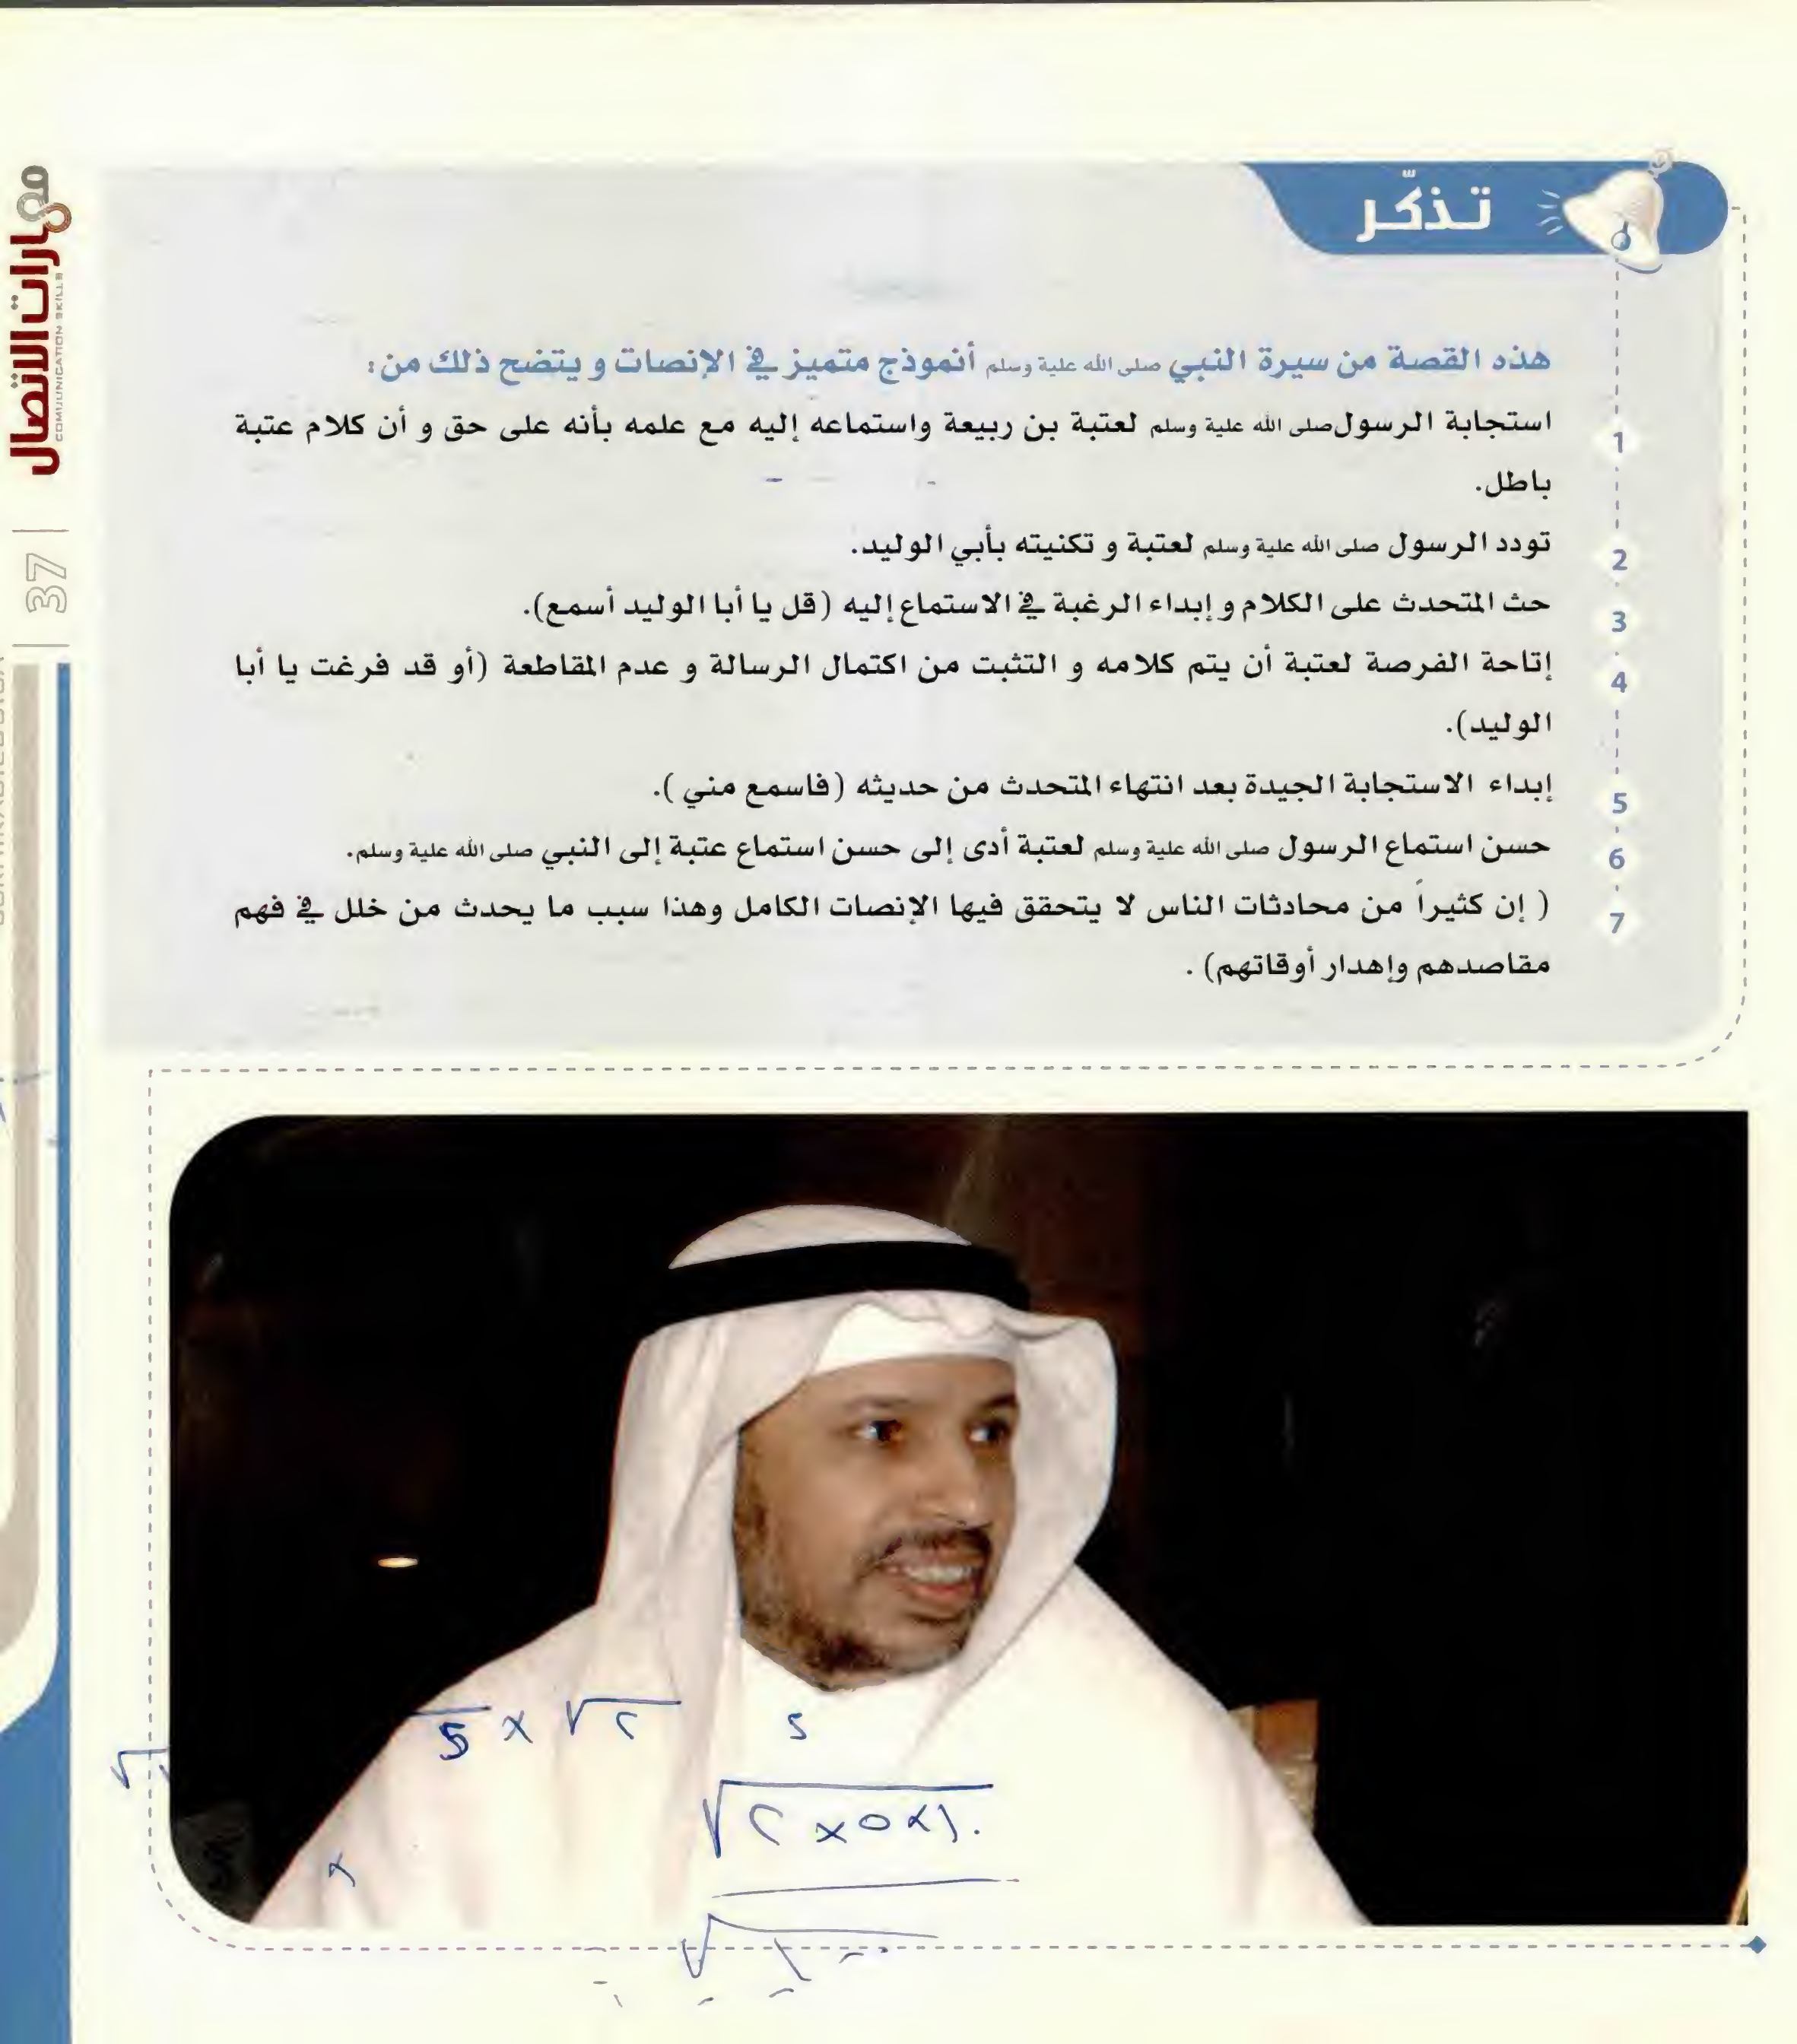 تذكّر
هذه القصة من سيرة النبي صلى الله علية وسلم أنموذج متميز في الإنصات و يتضح ذلك من:
1 استجابة الرسول صلى الله علية وسلم لعتبة بن ربيعة واستماعه إليه مع علمه بأنه على حق و أن كلام عتبة
باطل.
2 تودد الرسول صلى الله علية وسلم لعتبة و تكنيته بأبي الوليد.
3 حث المتحدث على الكلام و إبداء الرغبة في الاستماع إليه (قل يا أبا الوليد أسمع).
4 إتاحة الفرصة لعتبة أن يتم كلامه و التثبت من اكتمال الرسالة و عدم المقاطعة (أو قد فرغت يا أبا
الوليد).
5 إبداء الاستجابة الجيدة بعد انتهاء المتحدث من حديثه (فاسمع مني ).
6 حسن استماع الرسول صلى الله علية وسلم لعتبة أدى إلى حسن استماع عتبة إلى النبي صلى الله علية وسلم.
7 ( إن كثيراً من محادثات الناس لا يتحقق فيها الإنصات الكامل وهذا سبب ما يحدث من خلل في فهم
مقاصدهم وإهدار أوقاتهم) .
مهارات الاتصال
COMMUNICATION SKILLS
37
5 × √٢
5
√٢×٥×١٠